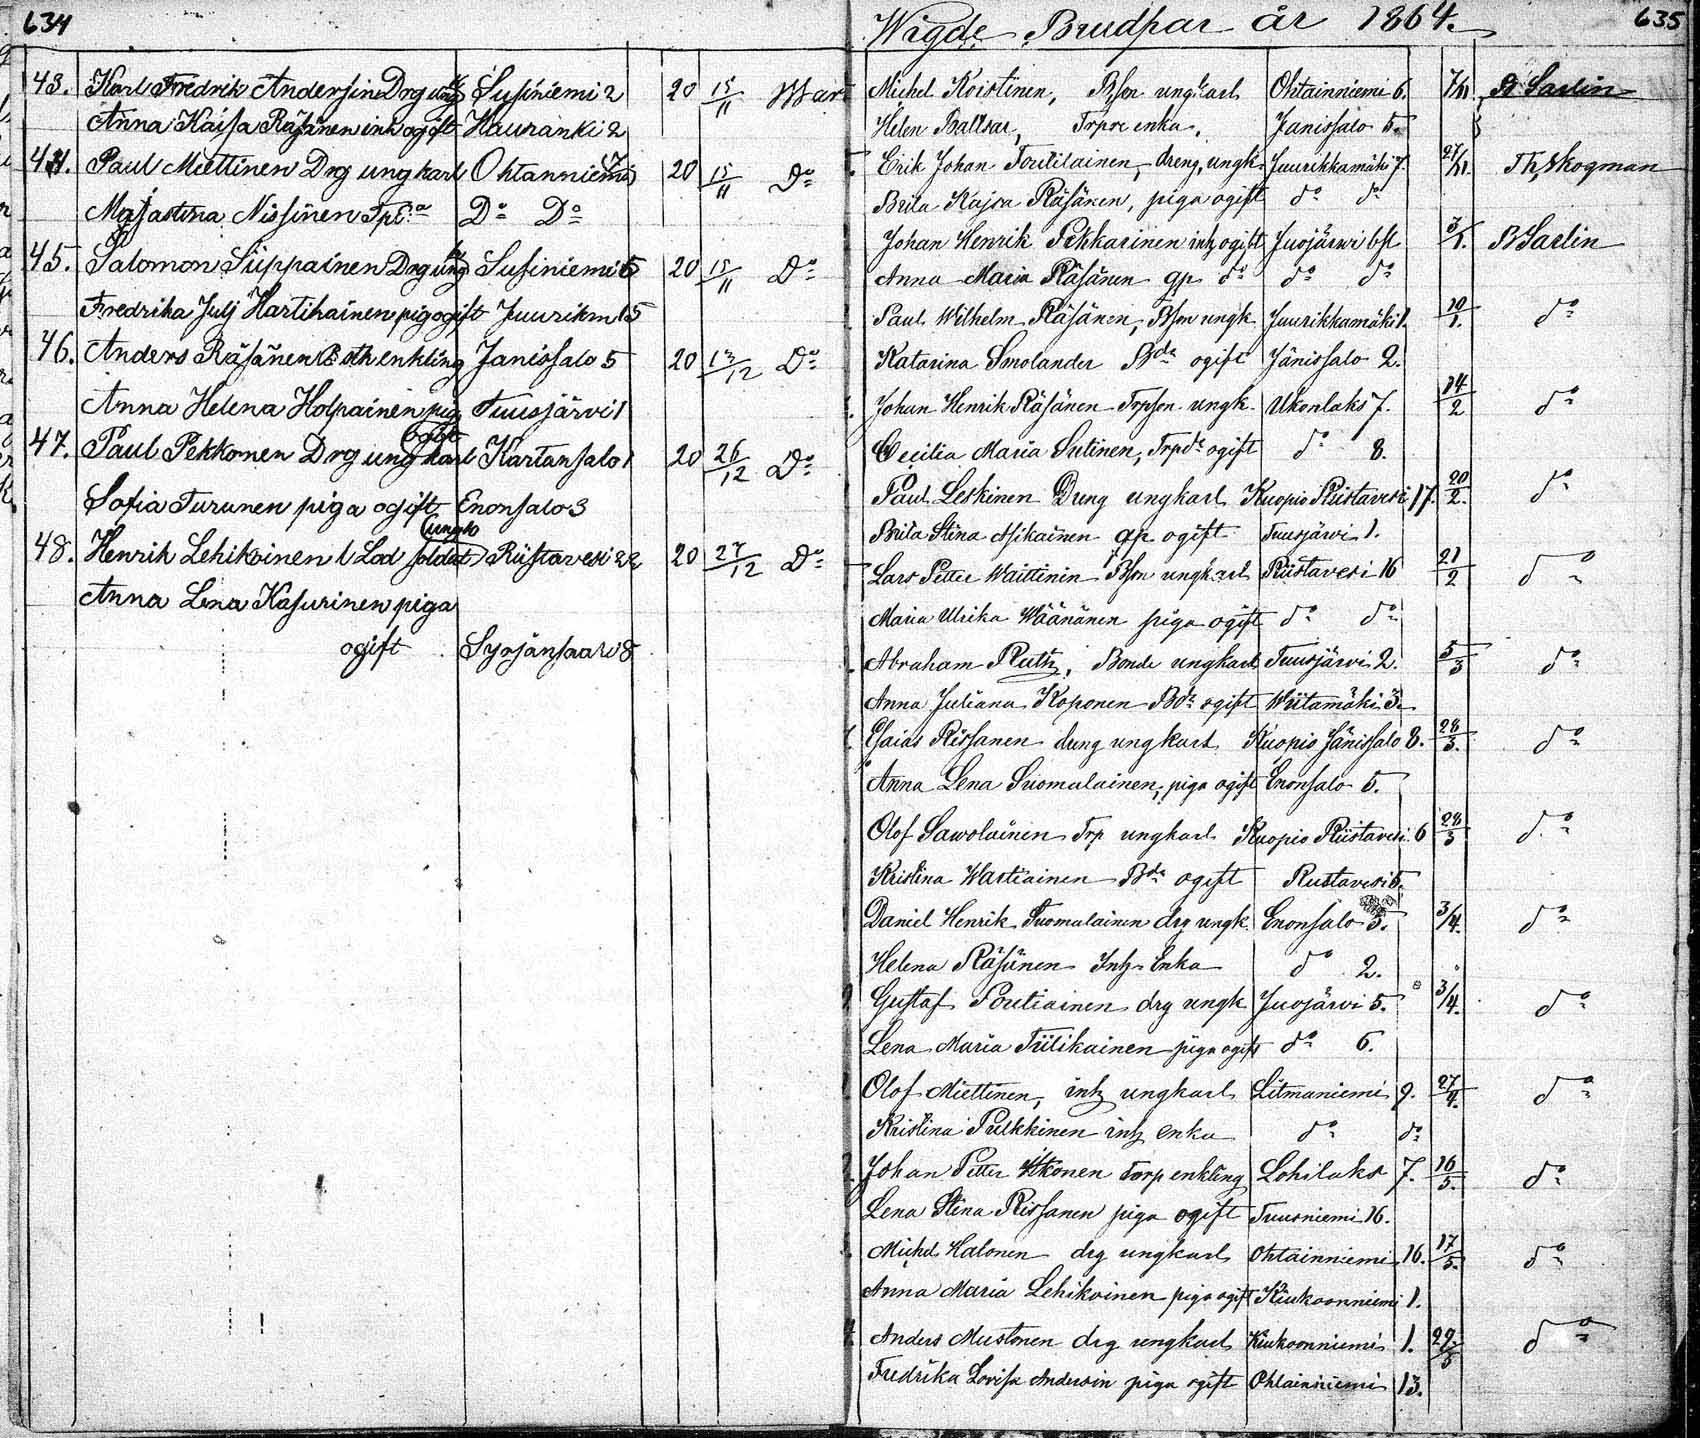 634
43. Karl Fredrik Andersin Drg ung Susiniemi 2 20 15/11 Mart
Anna Kaisa Räsänen inh ogift Hauranki 2
44. Paul Miettinen Drg ungkarl Ohtanniemi 17 20 15/11 Do
Nissinen Do Do
45. Salomon Suppainen Drg ung Susiniemi 5 20 15/11 Do
Fredrika Julj Hartikainen pig ogift Juurikm 15
46. Anders Räsänen enkling Janissalo 5 20 13/12 Do
Anna Helena Holpainen pig ogift Tuusjärvi 1
47. Paul Pekkonen Drg ungkarl Kartansalo 1 20 26/12 Do
Sofia Turunen piga ogift Enonsalo 3
48. Henrik Lehikoinen Lod soldat Riistavesi 22 20 27/12 Do
Anna Lena Kasurinen piga
ogift Syrjänsaari 8
Wigde Brudpar år 1864. 635
Michel Koistinen, Bson ungkarl Ohtainniemi 6. B Sarlin
Helen Baltsar, Trpre enka, Janissalo 5.
Erik Johan Toutilainen, dreng, ungk. Juurikkamäki 7. Th, Skogman
Brita Kajsa Räsänen, piga ogift do do
Johan Henrik Pekkarinen inh ogift Juojärwi 3/1. B Sarlin
Anna Maria Räsänen qp do do do
Paul Wilhelm Räsänen, Bson ungk Juurikkamäki 1. 10/1. do
Katarina Smolander Bdr ogift Jänissalo 2.
Johan Henrik Räsänen Trpson ungk. Ukonlaks 7. 14/2 do
Cecilia Maria Sutinen, Trpdr ogift do 8.
Paul Leskinen Dreng ungkarl Kuopio Riistavesi 17. 20/2. do
Brita Stina Asikainen qp ogift Tuusjärvi 1.
Lars Petter Waittinin Bson ungkarl Riistavesi 16 21/2 do
Maria Ulrika Wäänänen piga ogift do do
Abraham Ruth, Bonde ungkarl Tuusjärvi 2. 5/3 do
Anna Juliana Koponen Bdr ogift Wiitamäki 3.
Esaias Rissanen dreng ungkarl Kuopio Jänissalo 8. 28/3. do
Anna Lena Suomalainen, piga ogift Enonsalo 5.
Olof Sawolainen Trp ungkarl Kuopio Riistavesi. 6 28/3 do
Kristina Wartiainen Bdr ogift Rustavesi 5.
Daniel Henrik Tuomalainen drg ungk. Enonsalo 5. 3/4. do
Helena Räsänen Inh Enka do 2.
Gustaf Poutiainen drg ungk Juojärvi 5. 3/4. do
Lena Maria Tiilikainen piga ogift do 6.
Olof Miettinen, inh ungkarl Litmaniemi 9. 27/4. do
Kristina Pulkkinen inh enka do do
Johan Petter Itkonen Torp enkling Lohilaks 7. 16/5. do
Lena Stina Rissanen piga ogift Tuusniemi 16.
Michel Halonen drg ungkarl Ohtainniemi 16. 17/5. do
Anna Maria Lehikoinen piga ogift Kiukoonniemi 1.
Anders Mustonen drg ungkarl Kiukoonniemi 1. 29/5 do
Fredrika Lovisa Andersin piga ogift Ohtainniemi 13.